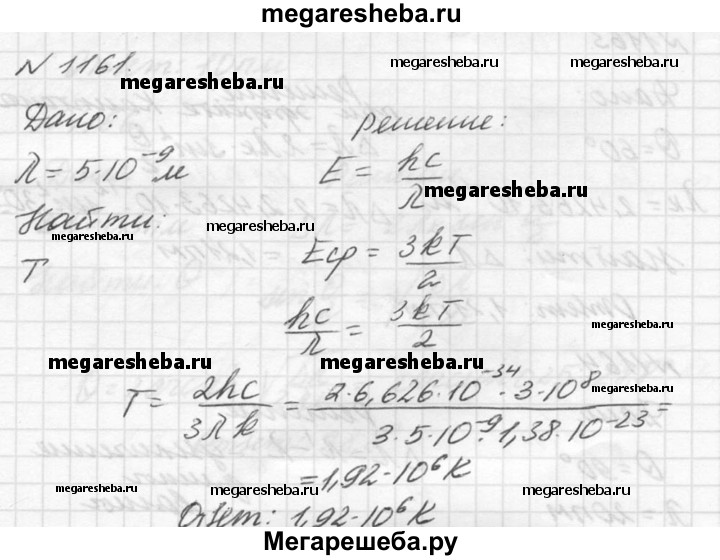 megaresheba.ru
N 1161.
megaresheba.ru
megaresheba.ru
Дано:
решение:
λ = 5·10⁻⁹ м
E = hc/λ
megaresheba.ru
Найти:
megaresheba.ru
megaresheba.ru
T
Eср = 3kT/2
hc/λ = 3kT/2
megaresheba.ru
megaresheba.ru
megaresheba.ru
megaresheba.ru
T = 2hc/3λk = 2·6,626·10⁻³⁴·3·10⁸/3·5·10⁻⁹·1,38·10⁻²³ =
= 1,92·10⁶ К
megaresheba.ru
megaresheba.ru
megaresheba.ru
Ответ: 1,92·10⁶ К
Мегарешеба.ру